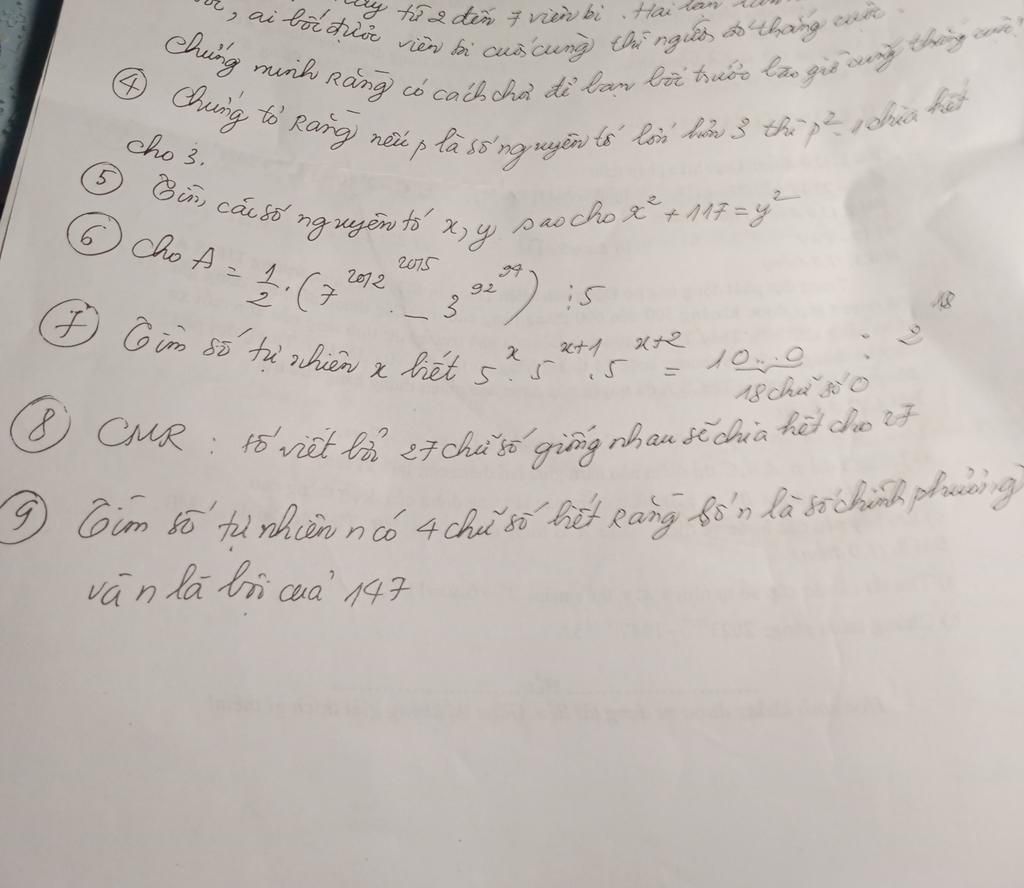 từ 2 đến 7 viên bi. Hai
, ai bốc được viên bi cuối cùng thì người đó thắng cuộc.
Chứng minh Rằng có cách chơi để bạn bốc trước bao giờ cũng thắng cuộc.
④ Chứng tỏ Rằng nếu p là số nguyên tố lớn hơn 3 thì p² - 1 chia hết
cho 3.
⑤ Tìm các số nguyên tố x, y sao cho x² + 117 = y²
⑥ Cho A = 1/2 . (7^2012^2015 - 3^92^94) ⋮ 5
⑦ Tìm số tự nhiên x biết 5^x . 5^x+1 . 5^x+2 = 10...0 : 2^18
18 chữ số 0
⑧ CMR : số viết bởi 27 chữ số giống nhau sẽ chia hết cho 27
⑨ Tìm số tự nhiên n có 4 chữ số biết Rằng số n là số chính phương
và n là bội của 147